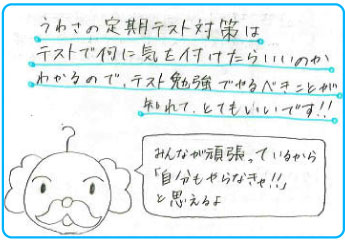 うわさの定期テスト対策は
テストで何に気を付けたらいいのか
わかるので、テスト勉強でやるべきことが
知れて、とてもいいです!!
みんなが頑張っているから
「自分もやらなきゃ!!」
と思えるよ